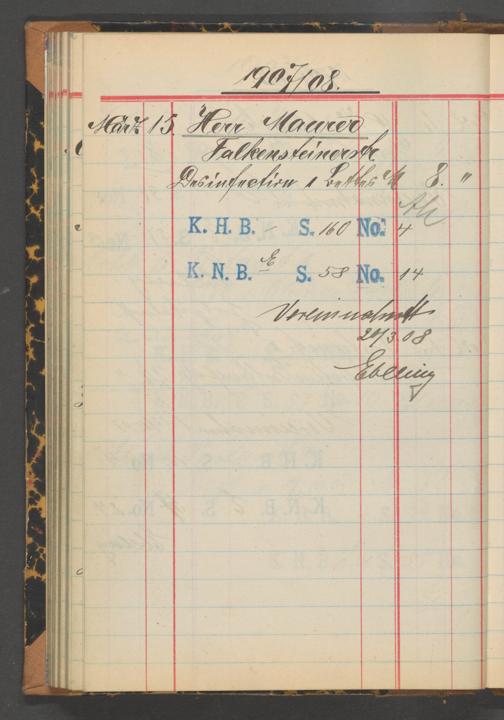 1907/08.
März 15. Herr Maurer
Falkensteinerstr.
Desinfection 1 Bettes M 8. "
K. H. B. - S. 160 No. 4
K. N. B. S. 58 No. 14
Vereinnahmt
20/3.08
Ebeling